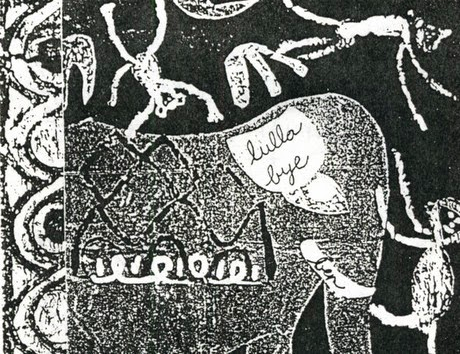 lulla
bye